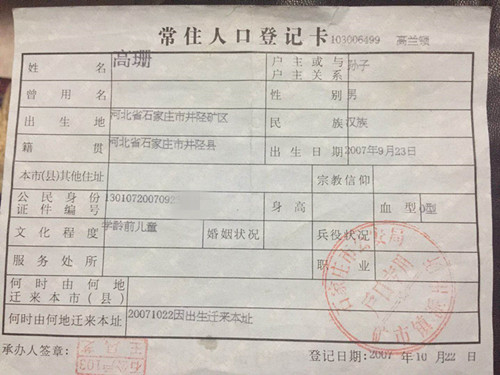 常住人口登记卡 103006499
姓名 高珊 户主或与户主关系 孙子
曾用名 性别 男
出生地 河北省石家庄市井陉矿区 民族 汉族
籍贯 河北省石家庄市井陉县 出生日期 2007年9月23日
本市(县)其他住址 宗教信仰
公民身份证件编号 1301072007092 身高 血型 O型
文化程度 学龄前儿童 婚姻状况 兵役状况
服务处所 职业
何时由何地迁来本市(县)
何时由何地迁来本址 20071022因出生迁来本址
承办人签章: 登记日期:2007年10月22日